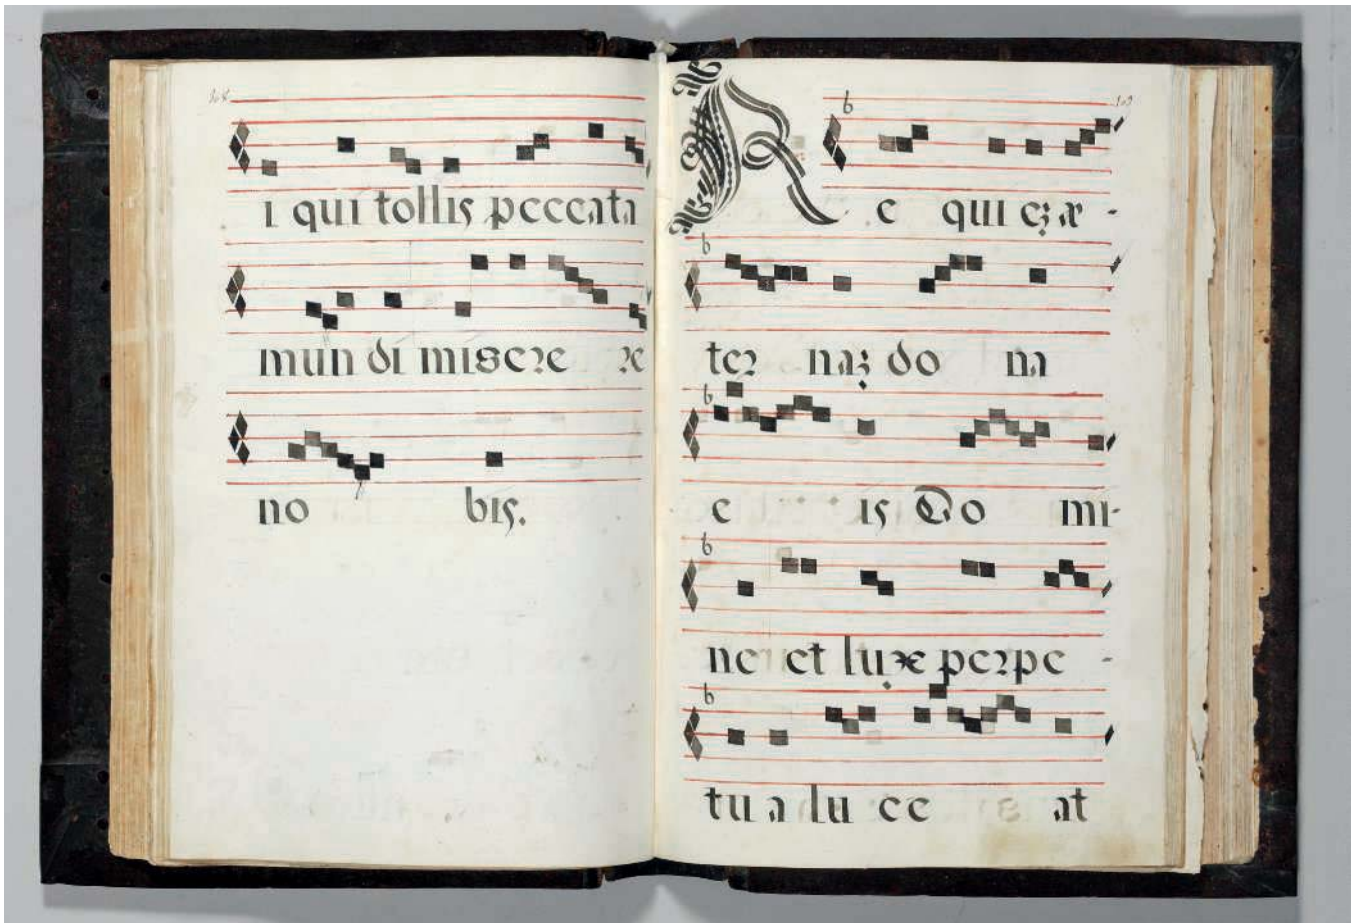 108
i qui tollis peccata
mun di misere re
no bis.
109
Re qui ez æ -
ter naz do na
e is Do mi-
ne et luxe perpe -
tu a lu ce at